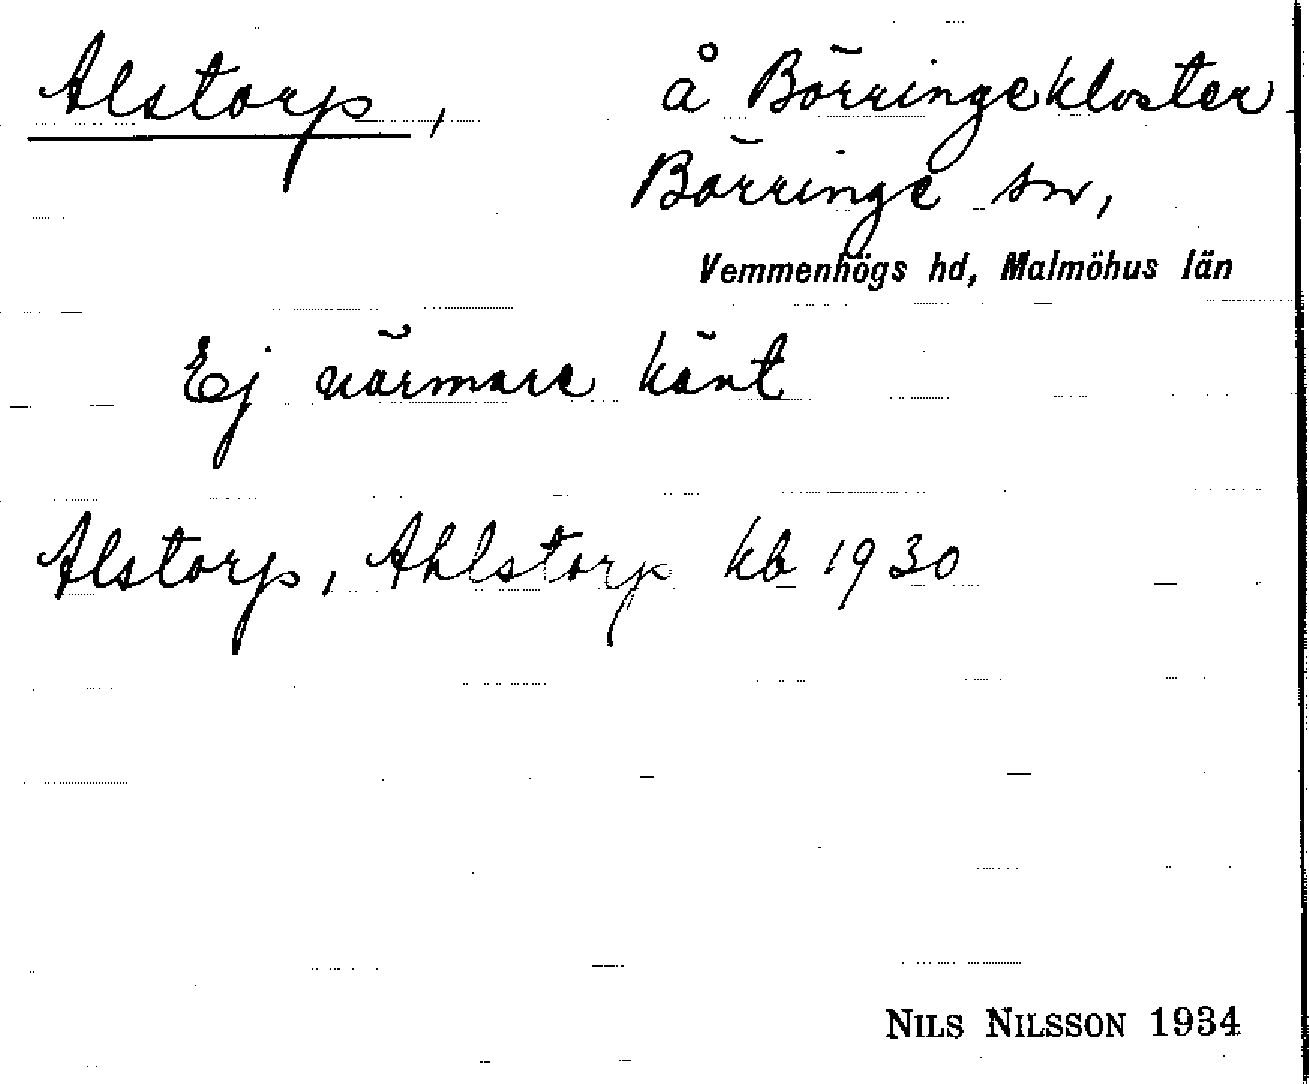 Alstorp, å Börringekloster
Börringe sn,
Vemmenhögs hd, Malmöhus län
Ej närmare känt
Alstorp, Ahlstorp kb 1930
NILS NILSSON 1934